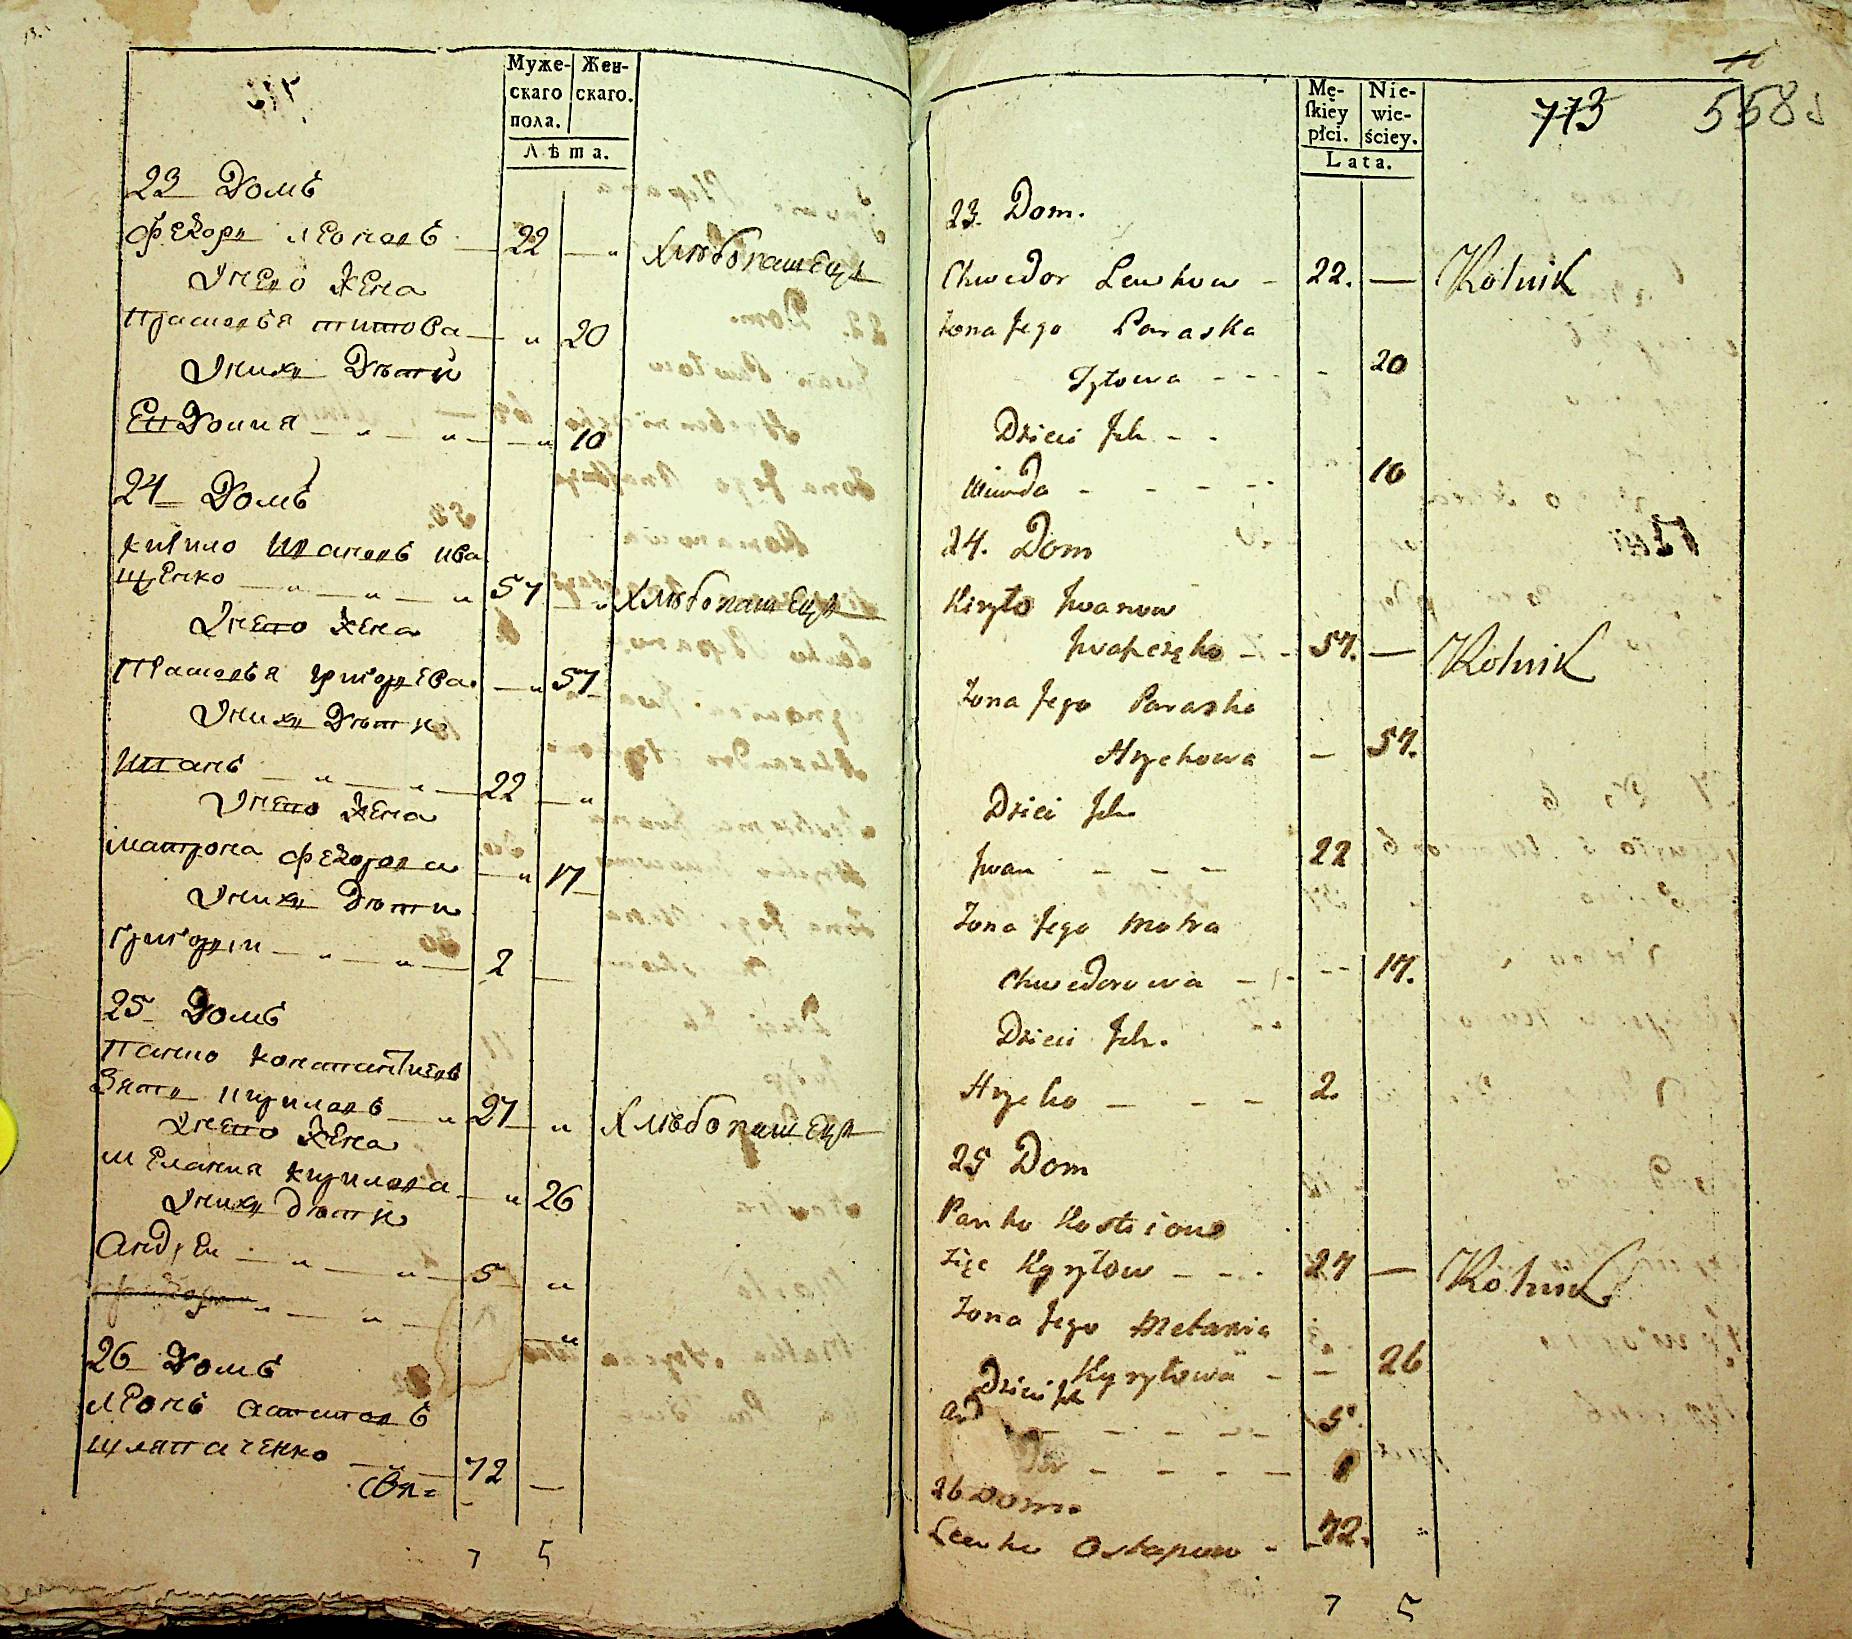 Муже-
скаго
пола.
Жен-
скаго.
Лѣта.
23 Домъ
Федоръ Леоновъ 22 Хлѣбопашецъ
Унего Жена
Прасковья Титова 20
Унихъ Дѣти
Евдокия 10
24 Домъ
Кирило Ивановъ Ива
щенко 57 Хлѣбопашецъ
Унего Жена
Прасковья Григорьева 57
Унихъ Дѣти
Иванъ 22
Унего Жена
Матрона Федорова 17
Унихъ Дѣти
Григорий 2
25 Домъ
Панко
Зять Кириловъ 27 Хлѣбопашецъ
Унего Жена
Мелания Кирилова 26
Унихъ дѣти
Андрей 5
26 Домъ
Леонъ Остаповъ
72
7 5
Mę-
ſkiey
płci.
Nie-
wie-
ściey.
Lata.
773
558
23. Dom.
Chwedor Lewkow 22. — Rolnik
Zona Jego Paraska
Tytowa 20
Dzieci Jch
10
24. Dom
Kiryło Jwanow
57. — Rolnik
Zona Jego Paraska
Hrychowa 57.
Dzieci Jch
Jwan 22
Zona Jego Motra
Chwedorowa 17.
Dzieci Jch.
Hryćko 2.
25 Dom
Panko Kostiow
Zięć Kyryłow 27 — Rolnik
Zona Jego Melania
Kyryłowa 26
Dzieci Jch
And 5
1
26 Dom.
Lewko Ostapow 72.
7 5